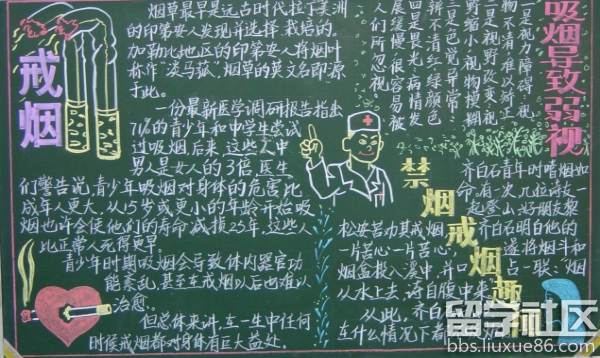 戒烟
烟草最早是远古时代拉丁美洲
的印第安人发现并选择栽培的。
加勒比地区的印第安人将烟叶
称作“淡马菰”,烟草的英文名即源
于此。
一份最新医学调研报告指出
71%的青少年和中学生尝试
过吸烟,后来,这些人中
男人是女人的3倍,医生
们警告说,青少年吸烟对身体的危害比
成年人更大,从15岁或更小的年龄开始吸
烟也许会使他们的寿命减损25年,这些人
比正常人死得更早
青少年时期吸烟会导致体内器官功
能紊乱,甚至在戒烟以后也难以
治愈。
但总体来讲,在一生中任何
时候戒烟都对身体有巨大益处。
吸烟导致弱视
一是视力障碍,视
物不清难以矫正
二是视野改变,视
野缩小,视物模糊
三是色觉异常:
辨不清红绿颜色
四是畏光,病情发
展缓慢,很容易被
人们所忽视
禁烟戒烟趣
齐白石青年时嗜烟如
命,有一次,几位诗友一
起登山,好朋友黎
松安苦劝其戒烟,齐石白明白他的
一片苦心一片苦心,遂将烟斗和
烟盒投入溪中,并口占一联:烟
从水上去,诗自腹中来
从此,齐白
在什么情况下者
留学社区
bbs.liuxue86.com